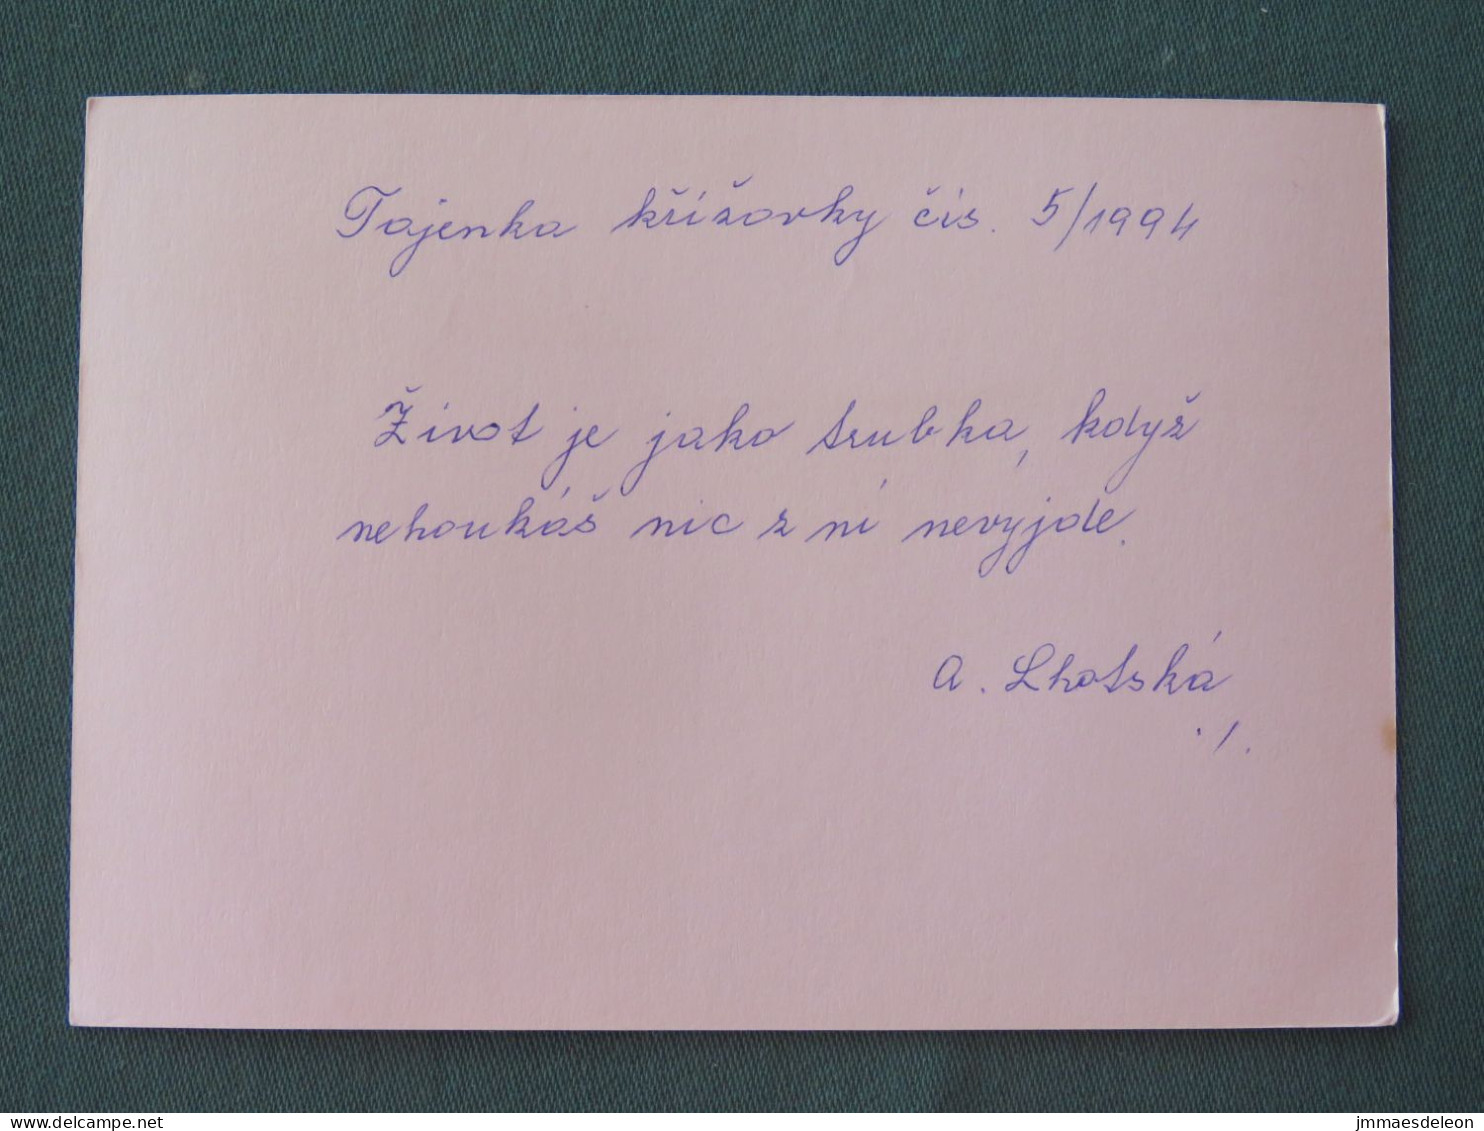 Tajenka křížovky čís. 5/1994
Život je jako trubka, když
nehoukáš nic z ní nevyjde.
A. Lhotská
jmmaesdeleon
www.delcampe.net